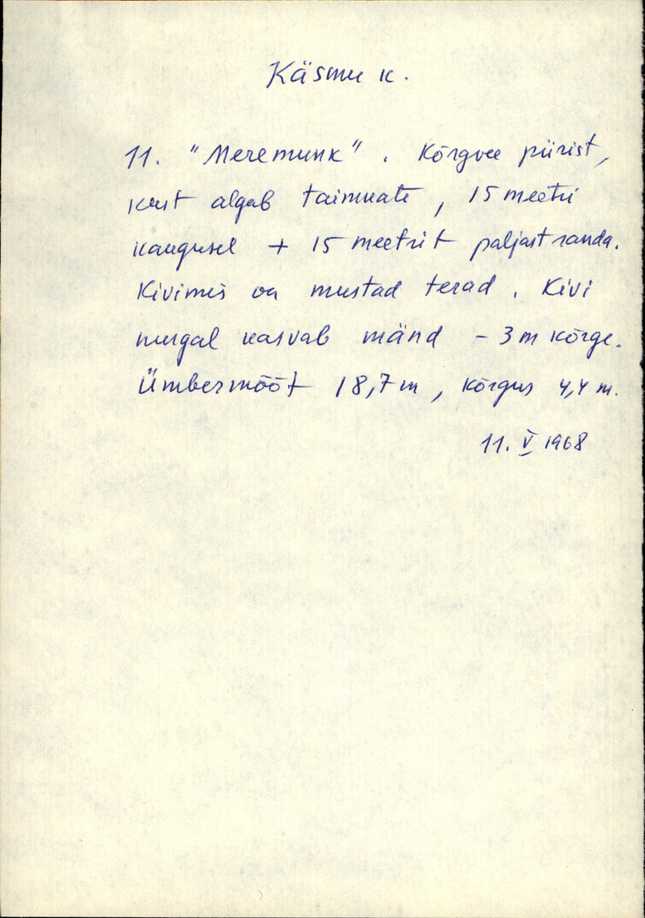 Käsmu k.
11. "Meremunk". Kõrgvee piirist,
kust algab taimkate, 15 meetri
kaugusel + 15 meetrit paljast randa.
Kivimis on mustad terad. Kivi
nurgal kasvab mänd - 3 m kõrge.
Ümbermõõt 18,7 m, kõrgus 4,4 m.
11. V 1968